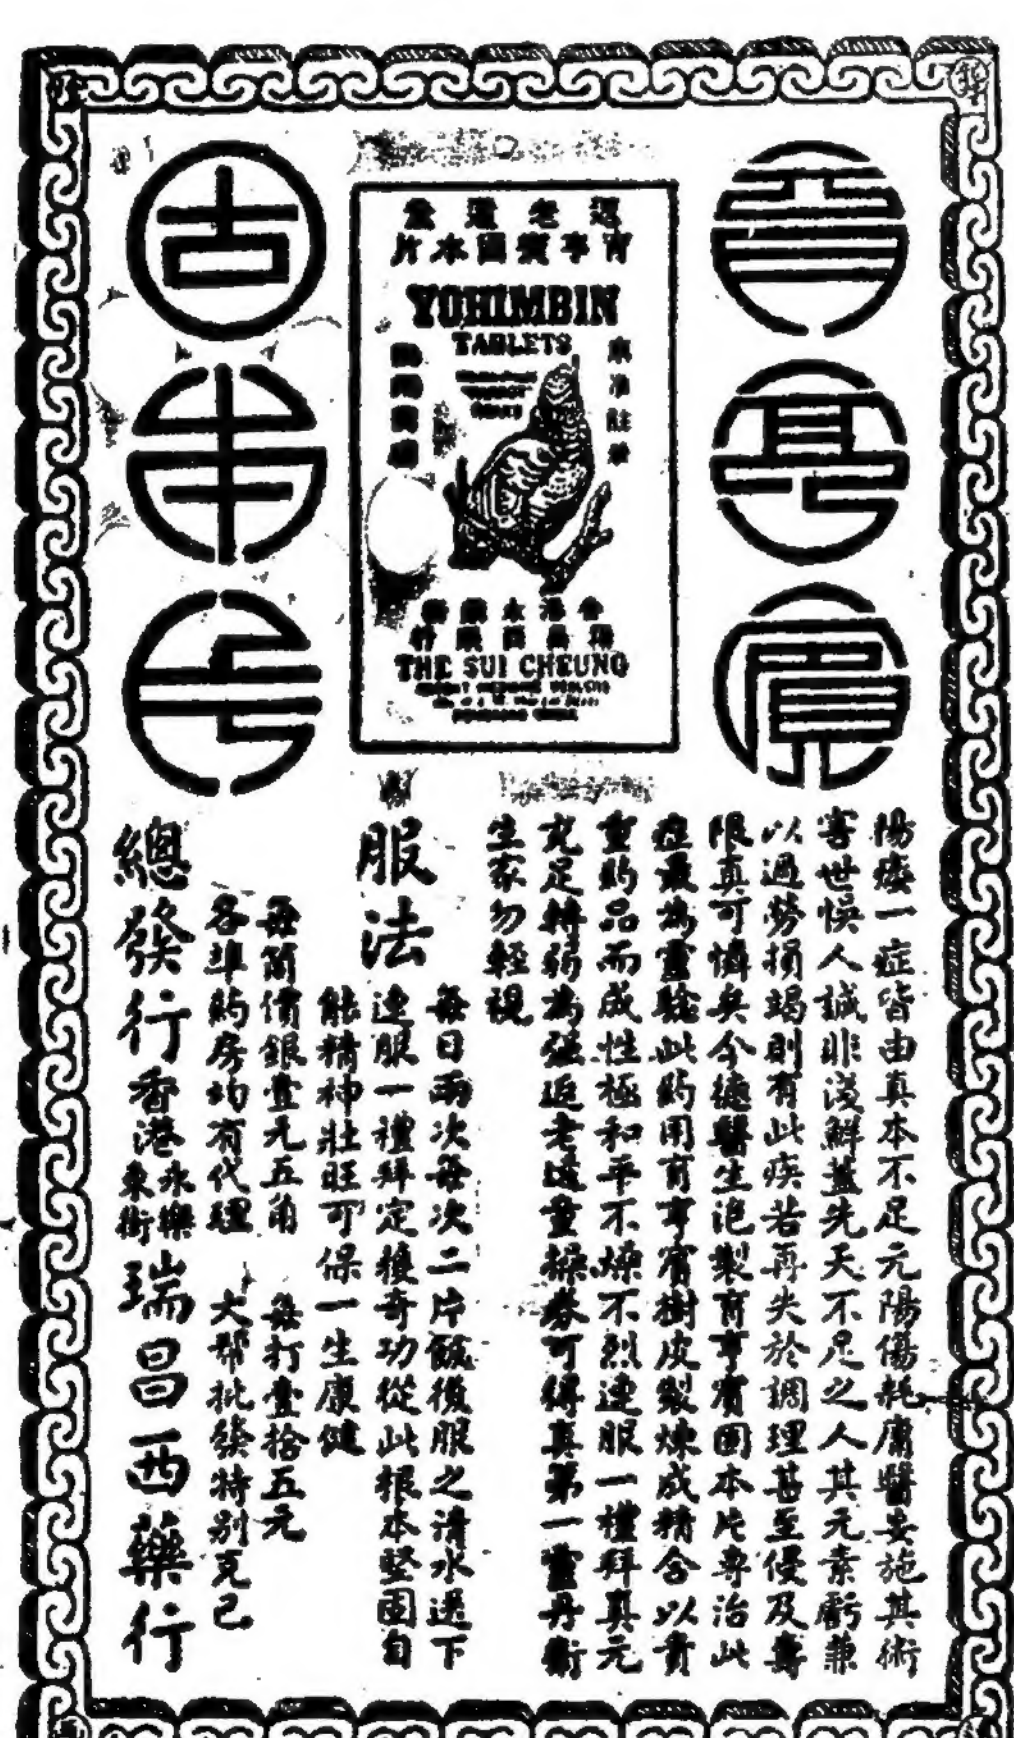 育亨賓
固本片
返老還童
育亨賓固本片
YOHIMBIN
TABLETS
THE SUI CHEUNG
陽痿一症皆由真本不足元陽傷耗庸醫妄施其術
害世悞人誠非淺鮮蓋先天不足之人其元素虧兼
以過勞損竭則有此疾若再失於調理甚至侵及壽
限真可憐矣今德醫生泡製育亨賓固本片專治此
症最為靈驗此葯用育亨賓樹皮製煉成精合以貴
重葯品而成性極和平不燥不烈連服一禮拜真元
充足轉弱為强返老還童操券可得真第一靈丹衛
生家勿輕視
服法
每日兩次每次二片飯後服之清水送下
連服一禮拜定獲奇功從此根本堅固自
能精神壯旺可保一生康健
每筒價銀壹元五角 每打壹拾五元
各埠葯房均有代理 大帮批發特別克己
總發行香港永樂東街瑞昌西藥行